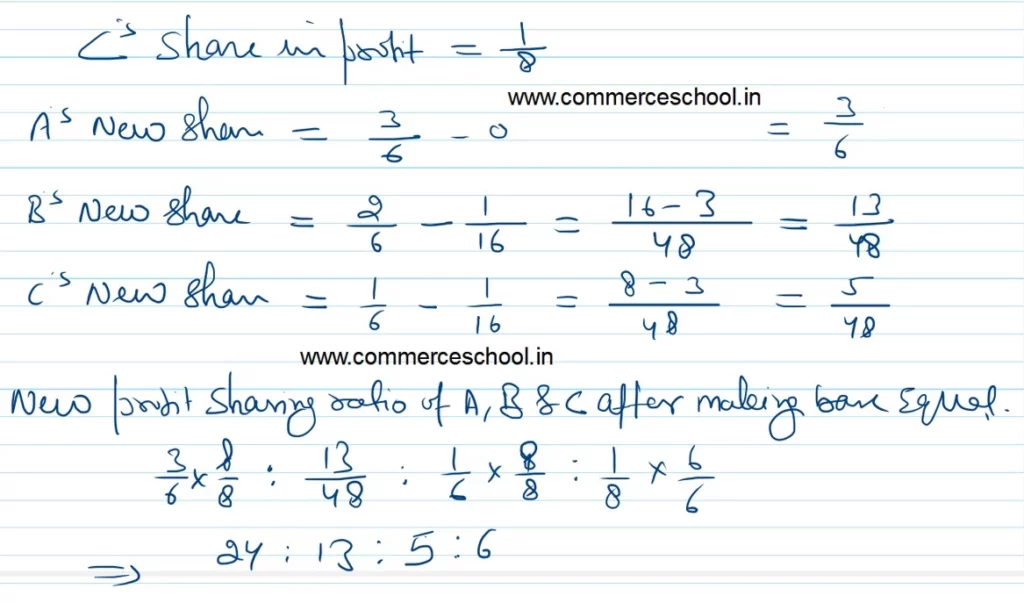 C's Share in profit = 1/8
www.commerceschool.in
A's New Share = 3/6 - 0 = 3/6
B's New Share = 2/6 - 1/16 = 16-3/48 = 13/48
C's New Share = 1/6 - 1/16 = 8-3/48 = 5/48
www.commerceschool.in
New profit Sharing ratio of A, B & C after making base Equal.
3/6 × 8/8 : 13/48 : 1/6 × 8/8 : 1/8 × 6/6
⇒ 24 : 13 : 5 : 6